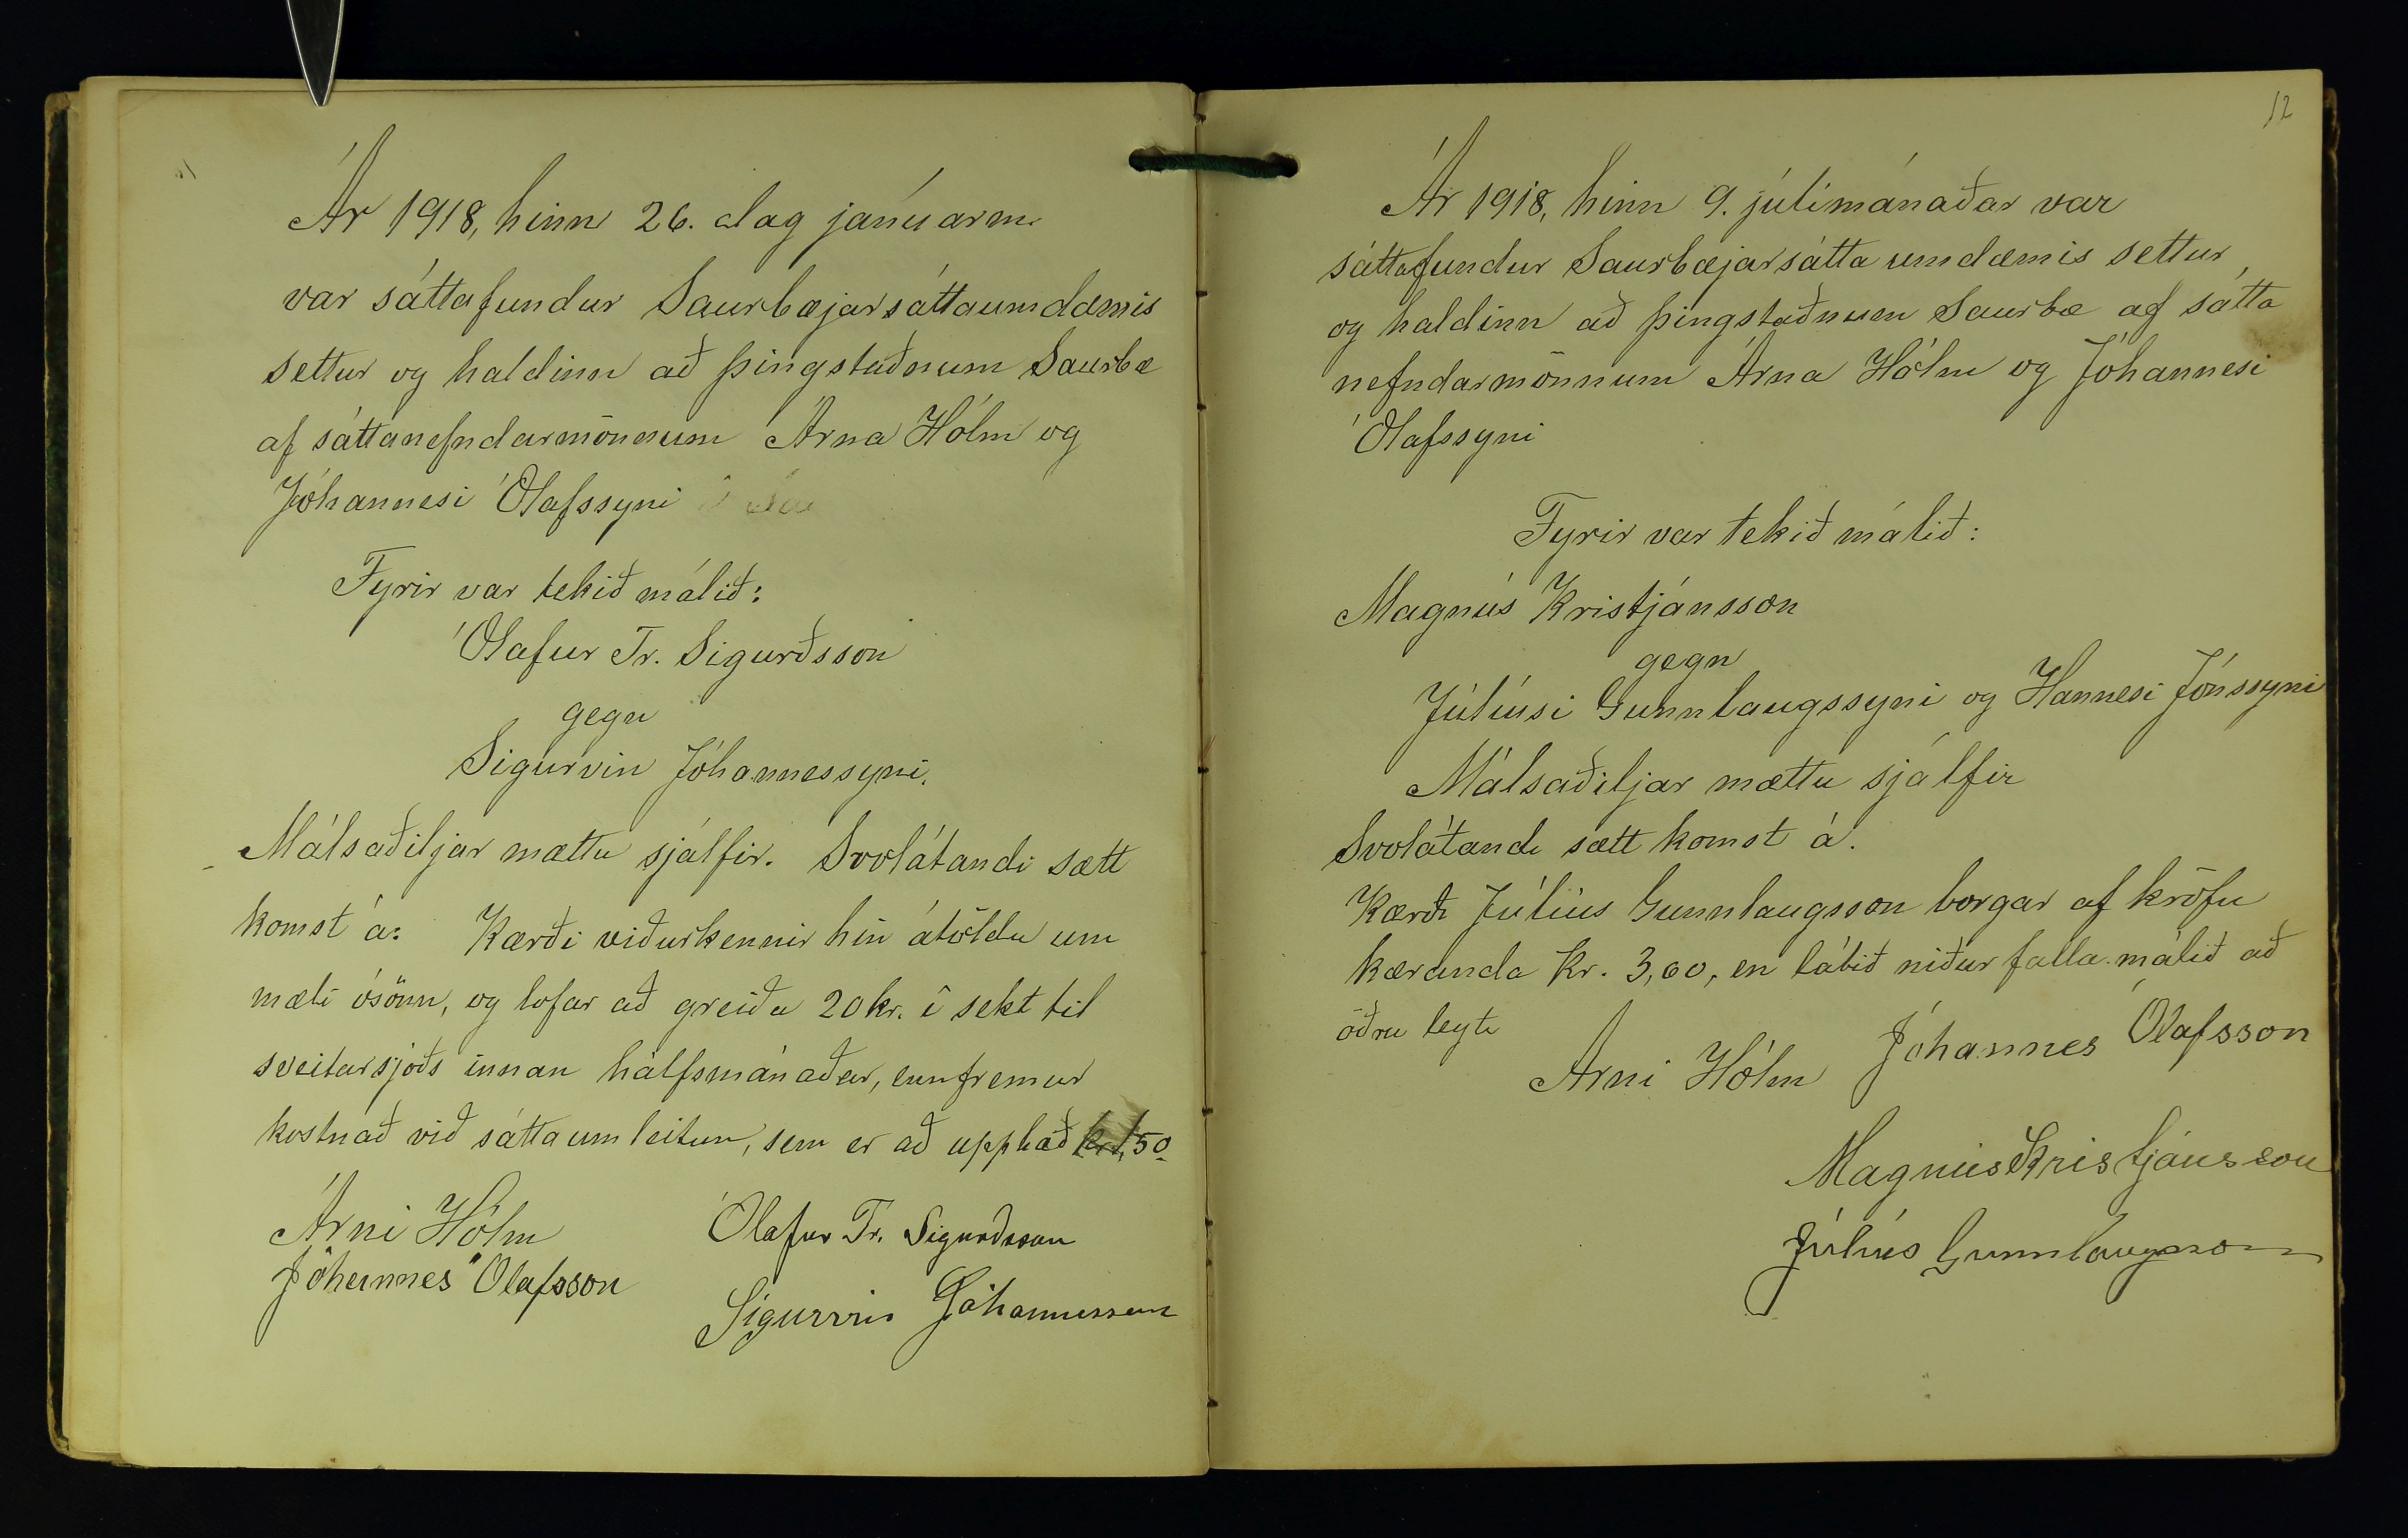 Ár 1918, hinn 26. dag janúarm.
var sáttafundur Saurbæjarsáttaumdæmis
settur og haldinn að þingstaðnum Saurbæ
af sáttanefndarmönnum Árna Hólm og
Jóhannesi Ólafssyni
Fyrir var tekið málið:
Ólafur Tr. Sigurðsson
gegn
Sigurvin Jóhannessyni.
Málsaðiljar mættu sjálfir. Svolátandi sætt
komst á: Kærði viðurkennir hin átöldu um
mæli ósönn, og lofar að greiða 20 kr. í sekt til
sveitarsjóðs innan hálfsmánaðar, ennfremur
kostnað við sáttaumleitun, sem er að upphæð kr 1,50
Árni Hólm
Jóhannes Ólafsson
Ólafur Tr. Sigurðsson
Sigurvin Jóhannesson
12
Ár 1918, hinn 9. júlímánaðar var
sáttafundur Saurbæjarsátta umdæmis settur,
og haldinn að þingstaðnum Saurbæ af sátta
nefndarmönnum Árna Hólm og Jóhannesi
Ólafssyni
Fyrir var tekið málið:
Magnús Kristjánsson
gegn
Júlíusi Gunnlaugssyni og Hannesi Jónssyni
Málsaðiljar mættu sjálfir
Svolátandi sætt komst á.
Kærði Júlíus Gunnlaugsson borgar af kröfu
kæranda Kr. 3,60, en látið niður falla málið að
öðru leyti
Árni Hólm Jóhannes Ólafsson
Magnús Kristjánsson
Júlíus Gunnlaugsson